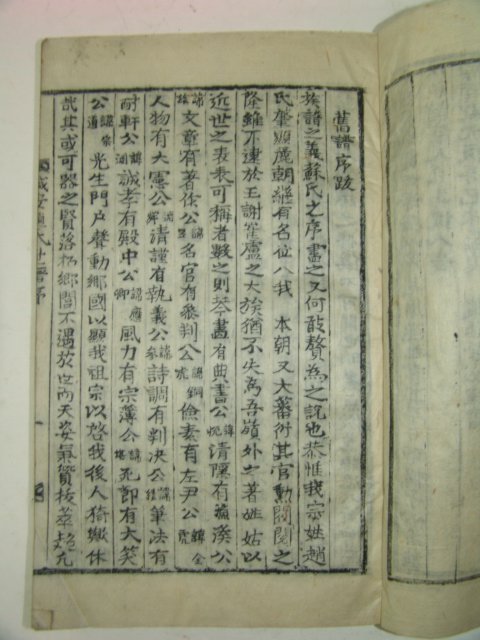 舊譜序跋
族譜之義蘇氏之序盡之又何敢贅爲之說也恭惟我宗姓趙
氏肇顯麗朝継有名位入我 本朝又大蕃衍其官勳閥閱之
隆雖不逮於王謝崔盧之大族猶不失爲吾嶺外之著姓姑以
近世之表表可稱者數之則琴書有典書公諱悅清隱有漁溪公
諱旅文章有著作公諱昱名官有參判公諱虎諱銅儉素有左尹公諱金虎
人物有大憲公諱淵清謹有執義公諱參詩調有判決公諱績筆法有
耐軒公諱淵誠孝有殿中公諱應卿風力有宗簿公諱堪死節有大笑
公諱宗道 光生門戶聲動鄉國以顯我祖宗以啓我後人猗歟休
哉其或可器之賢落拓鄉閭不遇於世而天姿氣質拔萃超凡
咸安趙氏世譜序